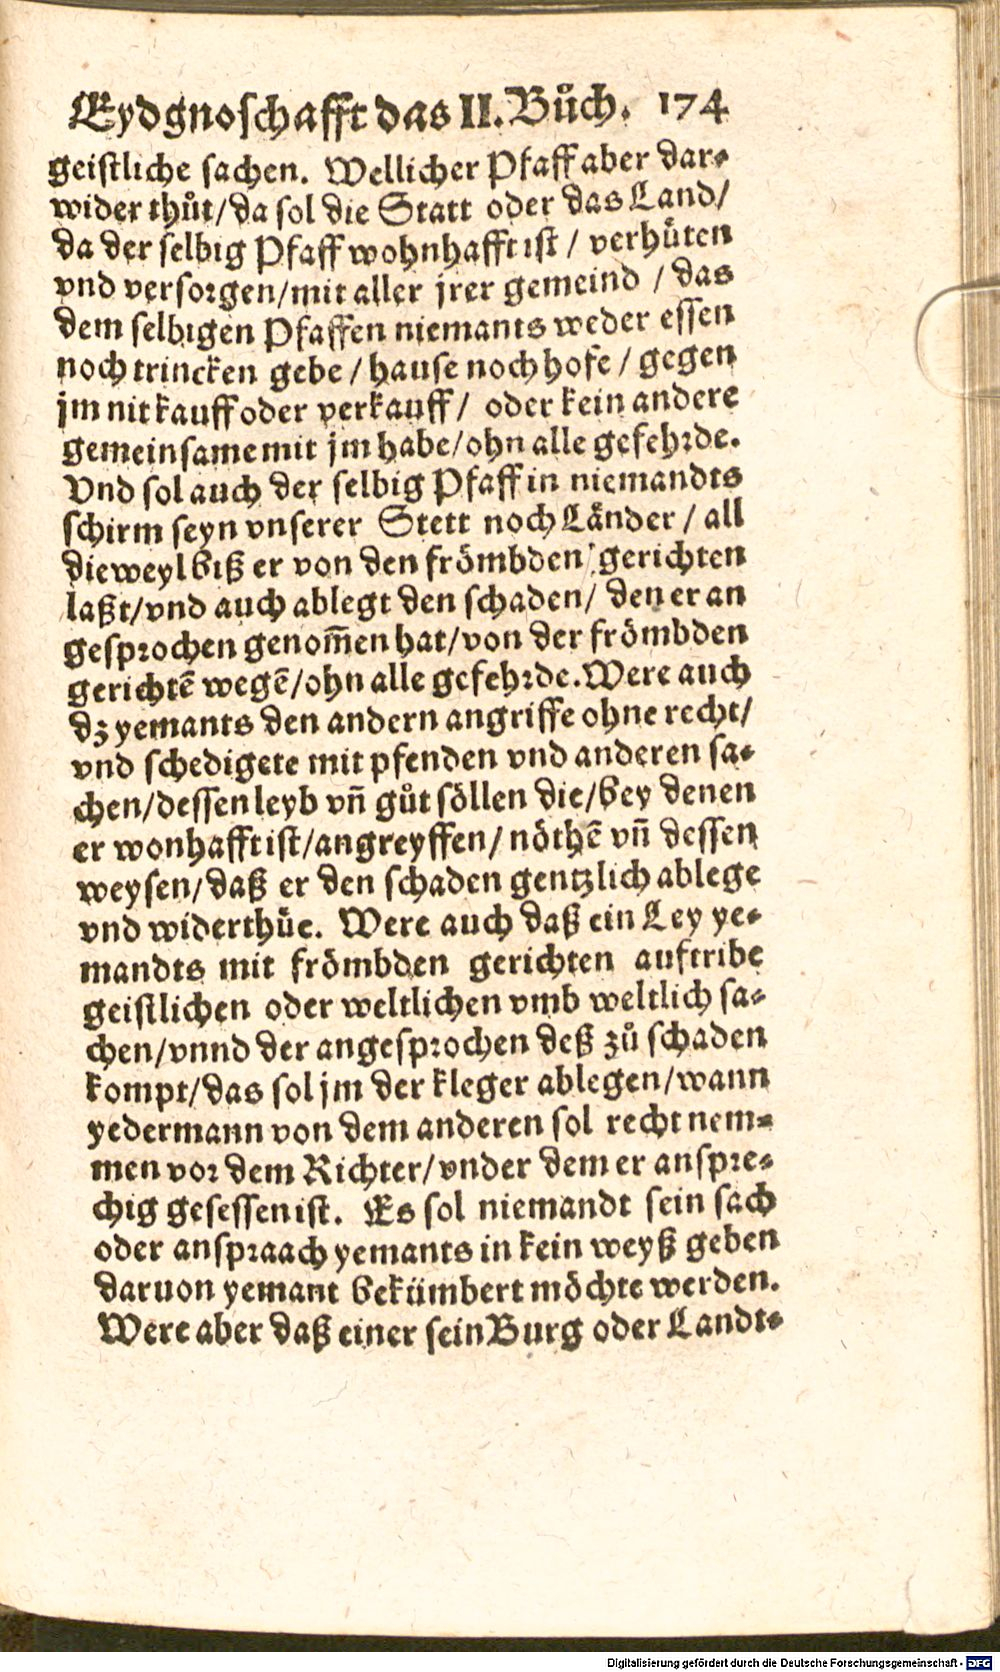 Eydgnoschafft das II. Bůch. 174
geistliche sachen. Wellicher Pfaff aber dar-
wider thůt/ da sol die Statt oder das Land/
da der selbig Pfaff wohnhafft ist / verhüten
vnd versorgen/ mit aller jrer gemeind / das
dem selbigen Pfaffen niemants weder essen
noch trincken gebe / hause noch hofe / gegen
jm nit kauff oder verkauff / oder kein andere
gemeinsame mit jm habe/ ohn alle gefehrde.
Vnd sol auch der selbig Pfaff in niemandts
schirm seyn vnserer Stett noch Länder / all
dieweyl biß er von den frömbden gerichten
laßt/ vnd auch ablegt den schaden/ den er an
gesprochen genom̄en hat/ von der frömbden
gerichtē wegē/ ohn alle gefehrde. Were auch
dz yemants den andern angriffe ohne recht/
vnd schedigete mit pfenden vnd anderen sa-
chen/ dessen leyb vn̄ gůt söllen die/ bey denen
er wonhafft ist/ angreyffen/ nöthē vn̄ dessen
weysen/ daß er den schaden gentzlich ablege
vnd widerthüe. Were auch daß ein Ley ye-
mandts mit frömbden gerichten auftribe
geistlichen oder weltlichen vmb weltlich sa-
chen/ vnnd der angesprochen deß zů schaden
kompt/ das sol jm der kleger ablegen/ wann
yedermann von dem anderen sol recht nem-
men vor dem Richter/ vnder dem er anspre-
chig gesessen ist. Es sol niemandt sein sach
oder anspraach yemants in kein weyß geben
daruon yemant bekümbert möchte werden.
Were aber daß einer sein Burg oder Landt-
Digitalisierung gefördert durch die Deutsche Forschungsgemeinschaft - DFG